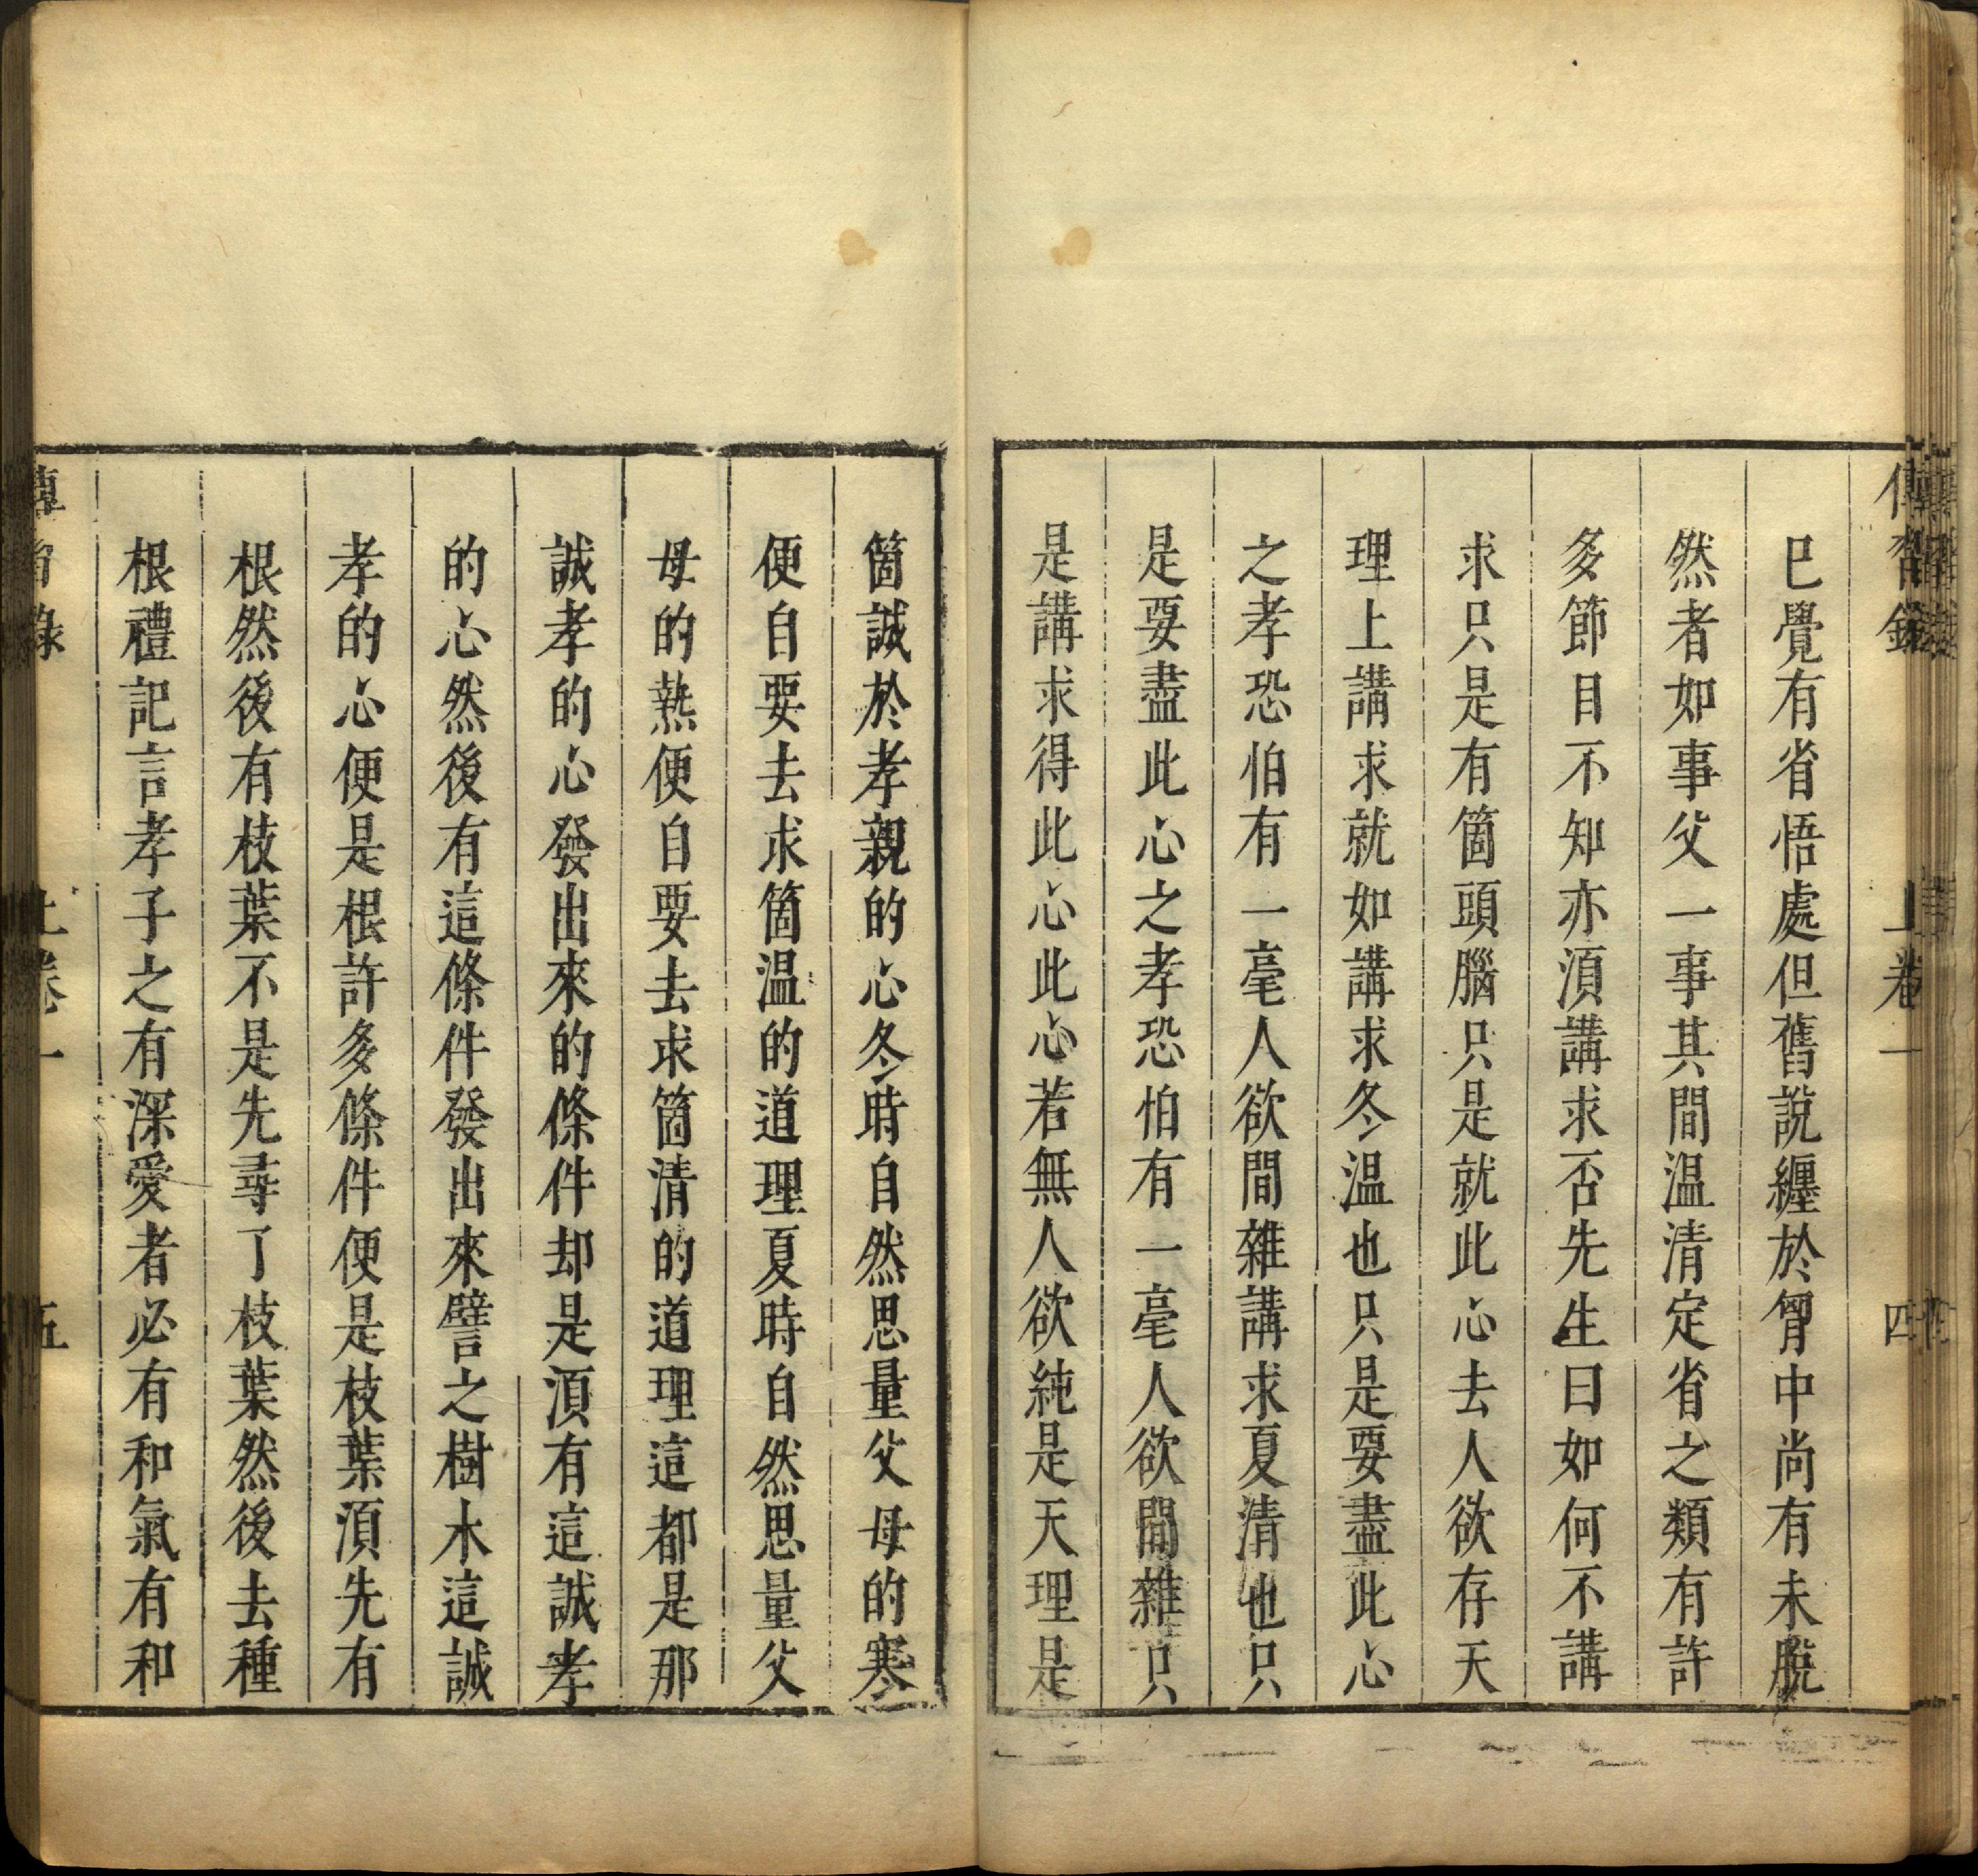 傳習錄 上卷一 四
已覺有省悟處但舊說纏於胷中尚有未脫
然者如事父一事其間温凊定省之類有許
多節目不知亦湏講求否先生曰如何不講
求只是有箇頭腦只是就此心去人欲存天
理上講求就如講求冬温也只是要盡此心
之孝恐怕有一毫人欲間雜講求夏凊也只
是要盡此心之孝恐怕有一毫人欲間雜只
是講求得此心此心若無人欲純是天理是
箇誠於孝親的心冬時自然思量父母的寒
便自要去求箇温的道理夏時自然思量父
母的熱便自要去求箇清的道理這都是那
誠孝的心發出來的條件却是湏有這誠孝
的心然後有這條件發出來譬之樹木這誠
孝的心便是根許多條件便是枝葉湏先有
根然後有枝葉不是先尋了枝葉然後去種
根禮記言孝子之有深愛者必有和氣有和
傳習錄 上卷一 五